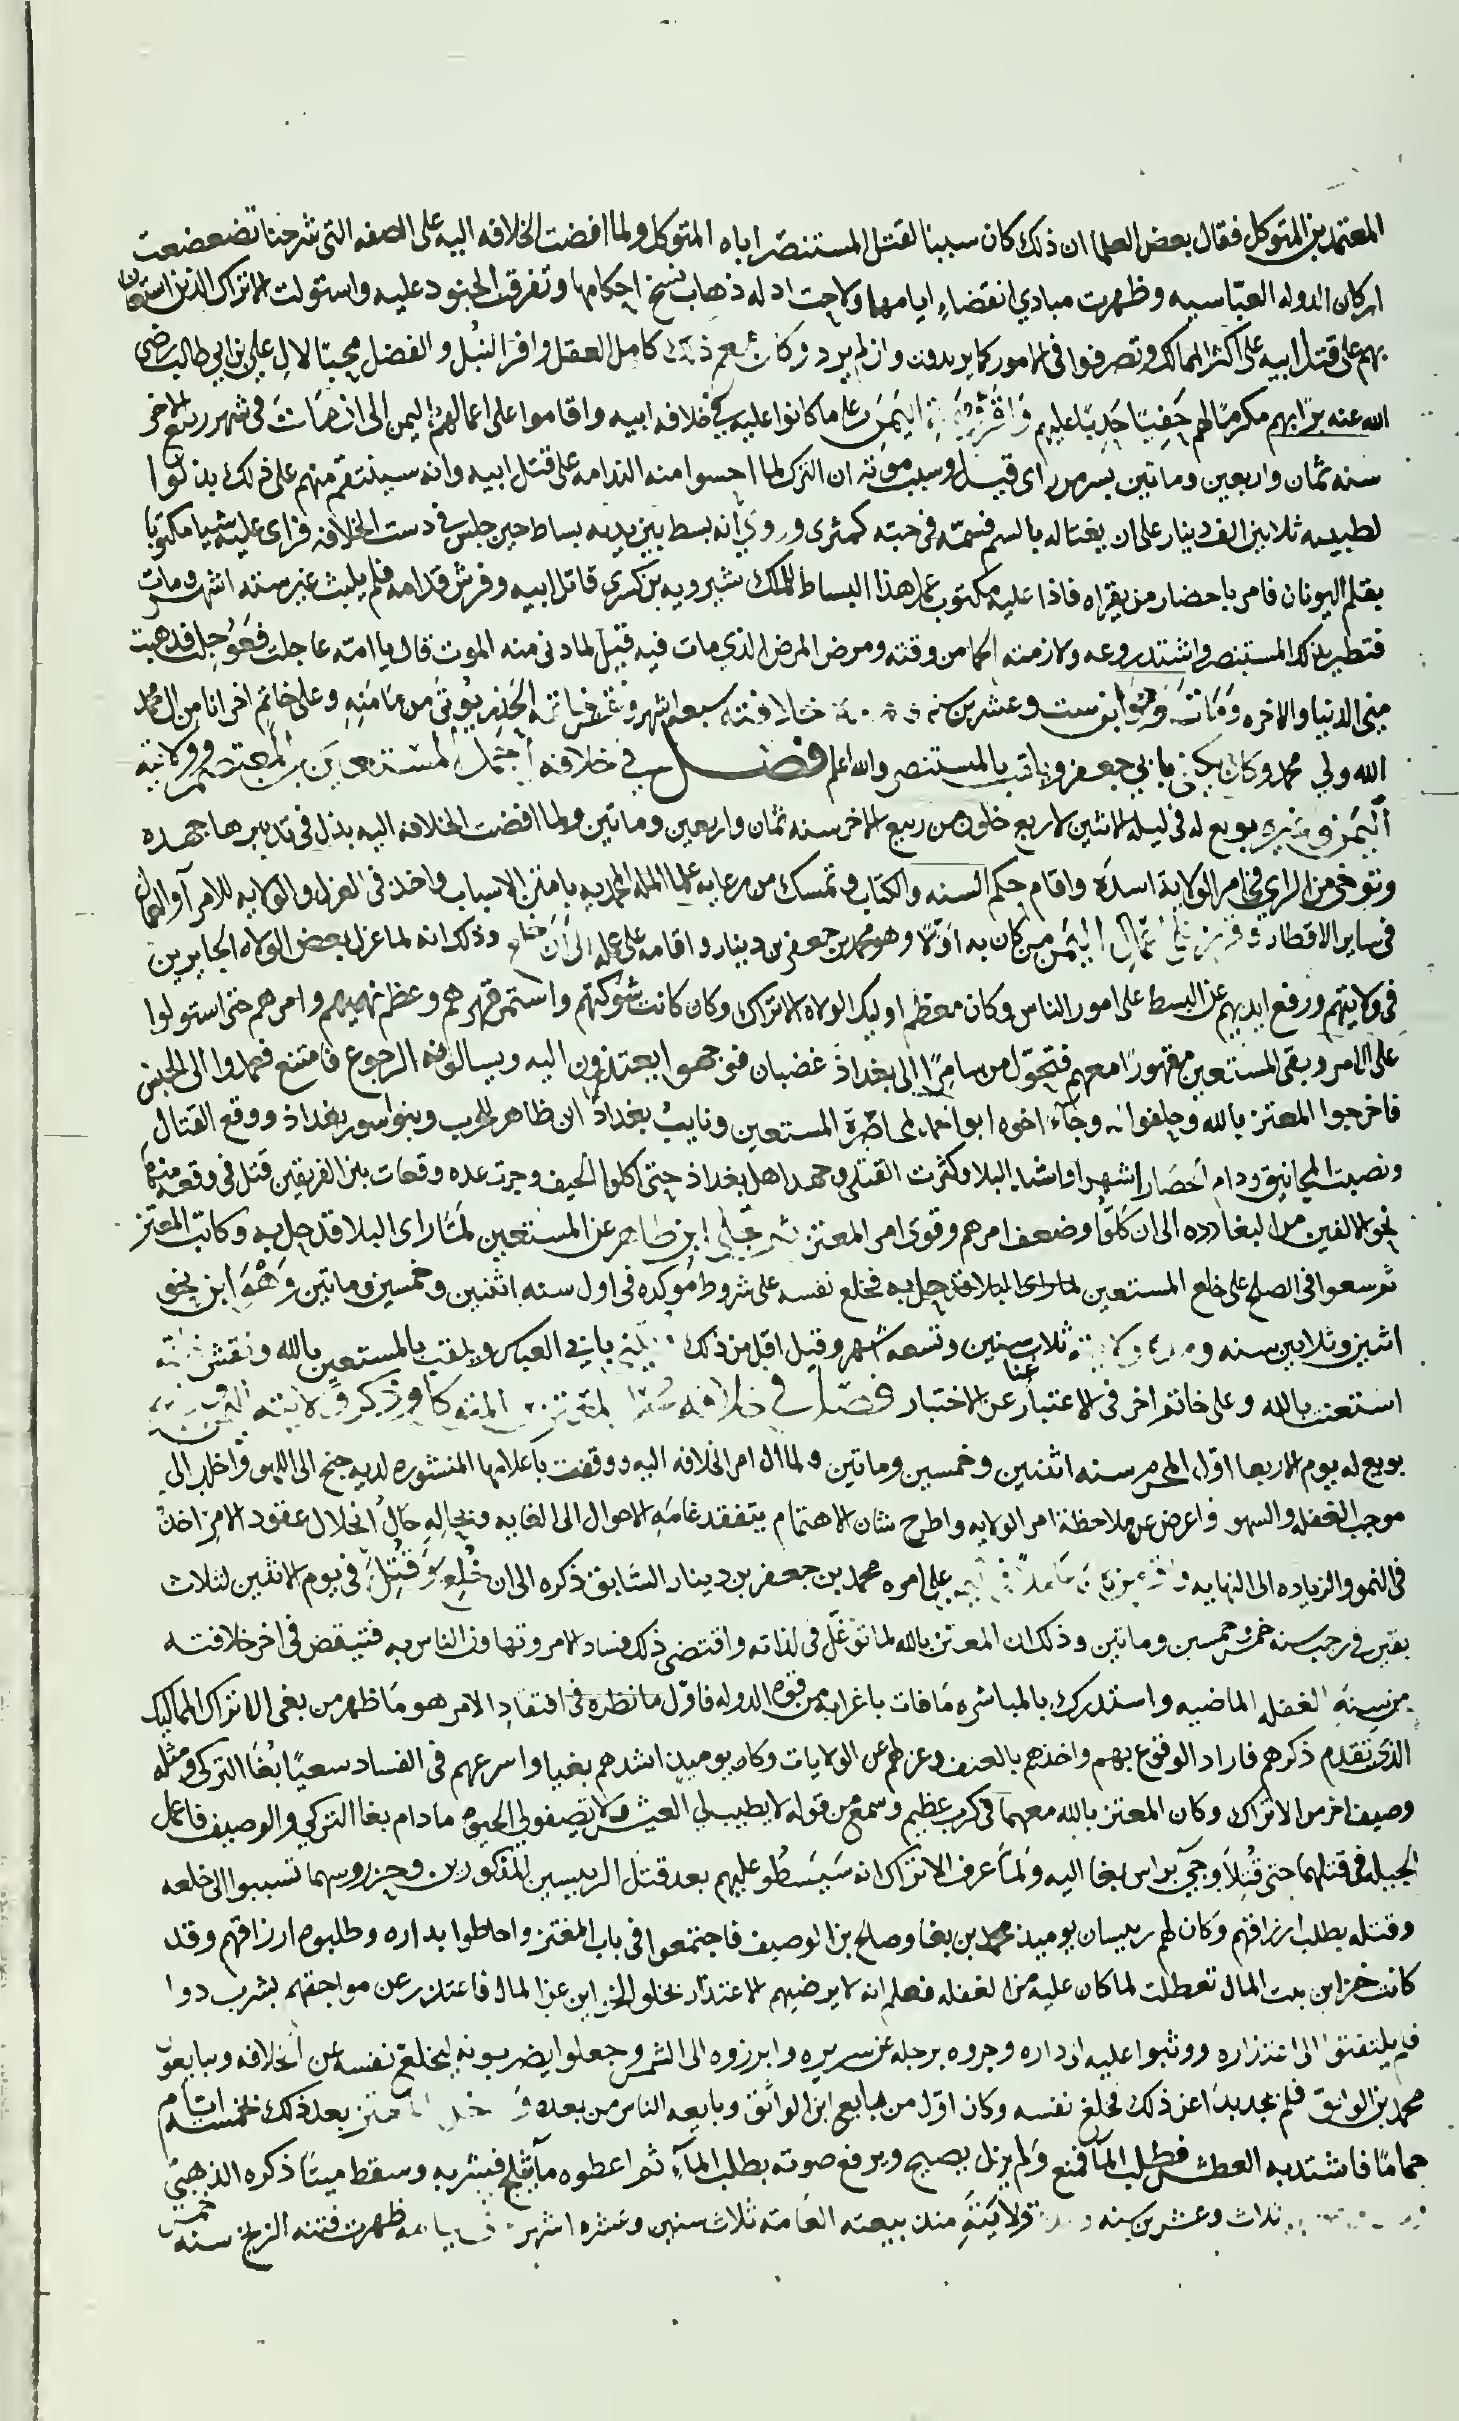 المعتمد بن المتوكل فقال بعض العلما ان ذلك كان سببا لقتل المستنصر اباه المتوكل ولما افضت الخلافه اليه على الصفه التى شرحنا تضعضعت
اركان الدوله العباسيه وظهرت مبادي انقضاء ايامها ولاحت ادله ذهاب نسخ احكامها وتفرقت الجنود عليه واستولت الاتراك الذين استعان
بهم على قتل ابيه على اكثر الممالك وتصرفوا فى الامور كما يريدون وان لم يرد وكان مع ذلك كامل العقل وافر النبل والفضل محبا لال علي بن ابي طالب رضى
الله عنه برا بهم مكرما لهم حفيا حدبا عليهم اليمن على ما كانوا عليه في خلافه ابيه واقاموا على اعمالهم اليمن الى ان مات فى شهر ربيع الاخر
سنه ثمان واربعين وماتين بسر من راى قيل وسبب موته ان الترك لما احسوا منه الندامه على قتل ابيه وانه سينتقم منهم على ذلك بذلوا
لطبيبه ثلاثين الف دينار على ان يغتاله بالسم فسمّه فى حبه كمثرى وروي انه بسط بين يديه بساط حين جلس فى دست الخلافه فراى عليه شيا مكتوبا
بقلم اليونان فامر باحضار من يقراه فاذا عليه مكتوب عمل هذا البساط للملك شيرويه بن كسرى قاتل ابيه وفرش قدامه فلم يلبث غير سته اشهر ومات
فتطير بذلك المستنصر واشتد روعه ولازمته الحما من وقته ومرض المرض الذي مات فيه قيل لما دنى منه الموت قال ياامته عاجلت فعوجلت فذهبت
منى الدنيا والاخره ومات وهو ابن ست وعشرين سنه خلافته سبعه اشهر ونقش خاتمه الحذر يؤتى من مامنه وعلى خاتم اخر انا من ال محمد
الله ولي محمد وكان يكنى بابي جعفر ويلقب بالمستنصر والله اعلم فصل في خلافه احمد المستعين بن المعتصم وولايته
اليمن وغيره بويع له فى ليله الاثنين لاربع خلون من ربيع الاخر سنه ثمان واربعين وماتين ولما افضت الخلافه اليه بذل فى تدبيرها جهده
وتوخى من الراي فى امر الولاية اسده واقام حكم السنه والكتاب وتمسك من رعايه علما المله المحمديه بامتن الاسباب واخذ فى العزل والولايه للامرآ والعمال
فى ساير الاقطار وقرر اعمال اليمن من كان به اولا وهو محمد بن جعفر بن دينار واقامه على عمله الى ان خلع وذلك انه لما عزل بعض الولاه الجايرين
فى ولايتهم ورفع ايديهم عن البسط على امور الناس وكان معظم اوليك الولاه الاتراك وكان كانت شوكتهم واستمر قهرهم وعظم نهيهم وامرهم حتى استولوا
على الامر وبقى المستعين مقهورا معهم فتحول من سامرا الى بغداذ غضبان فتوجهوا يعتذرون اليه ويسالونه الرجوع فامتنع فعمدوا الى الحبس
فاخرجوا المعتز بالله وحلفوا له وجآء اخوه ابو احمد لمحاصرة المستعين ونايب بغداذ ابن ظاهر للحرب وبنوا سور بغداذ ووقع القتال
ونصبت المجانيق ودام الحصار اشهرا واشتد البلا وكثرت القتلى وجهد اهل بغداذ حتى اكلوا الجيف وجرت عده وقعات بين الفريقين قتل فى وقعه منها
نحو الالفين من البغادده الى ان كلّوا وضعف امرهم وقوى امر المعتز ثم تخلى ابن طاهر عن المستعين لما راى البلا قد حل به وكاتب المعتز
ثم سعوا فى الصلح على خلع المستعين لما راى البلا قد حل به فخلع نفسه على شروط موكده فى اول سنه اثنين وخمسين وماتين وهو ابن نحو
اثنين وثلاثين سنه ومده ولايته ثلاث سنين وتسعه اشهر وقيل اقل من ذلك يكنى بابي العباس ويلقب بالمستعين بالله ونقش خاتمه
استعنت بالله وعلى خاتم اخر فى الاعتبار غنا عن الاختبار فصل في خلافه المعتز بن المتوكل وذكر ولايته
بويع له يوم الاربعا اول المحرم سنه اثنين وخمسين وماتين ولما ال امر الخلافه اليه ووقفت باعلامها المنشوره لديه جنح الى اللهو واخلد الى
موجب الغفله والسهو واعرض عن ملاحظة امر الولايه واطرح شان الاهتمام بتفقد عامه الاحوال الى الغايه حال انحلال عقود الامر اخذ
فى النمو والزياده الى النهايه على امره محمد بن جعفر بن دينار السابق ذكره الى ان خلع وقتل فى يوم الاثنين لثلاث
بقين فى رجب سنه خمس وخمسين وماتين وذلك ان المعتز بالله لما توغل فى لذاته واقتضى ذلك فساد الامر وتهاون الناس به فتيقض فى اخر خلافته
من سنة الغفله الماضيه واستدرك بالمباشره ما فات باغرابه من قوه الدوله فاول ما نظره فى افتقاد الامر هو ما ظهر من بغى الاتراك المماليك
الذى تقدم ذكرهم فاراد الوقوع بهم واخذهم بالعنف وعزلهم عن الولايات وكان يوميذ اشدهم بغيا واسرعهم فى الفساد سعيا بغا التركى ومثله
وصيف اخر من الاتراك وكان المعتز بالله معهما فى كرب عظيم وسمع من قوله لا يطيب لي العيش ولا يصفو لي الحيوه ما دام بغا التركي والوصيف فاعمل
الحيله فى قتلهما حتى قتلا وجي برأس بغا اليه ولما عرف الاتراك انه سيسطو عليهم بعد قتل الرييسين المذكورين وحز روسهما تسببوا الى خلعه
وقتله بطلب ارزاقهم وكان لهم رييسان يوميذ محمد بن بغا وصلح بن الوصيف فاجتمعوا فى باب المعتز واحاطوا بداره وطلبوه ارزاقهم وقد
كانت خزاين بيت المال تعطلت لما كان عليه من الغفله فعلم انه لا يرضيهم الاعتذار بخلو الخزاين عن المال فاعتذر عن مواجهتهم بشرب دوا
فلم يلتفتوا الى اعتذاره ووثبوا عليه الى داره وجروه برجله عن سريره وابرزوه الى الشمس وجعلوا يضربونه ليخلع نفسه عن الخلافه ويبايعون
محمد بن الواثق فلم يجد بدا عن ذلك فخلع نفسه وكان اول من بايع ابن الواثق وبايعه الناس من بعده المعتز بعد ذلك لخمسه ايام
حماما فاشتد به العطش فطلب المآ فمنع ولم يزل يصيح ويرفع صوته بطلب المآء ثم اعطوه مآ بثلج فشربه وسقط ميتا ذكره الذهبي
ثلاث وعشرين سنه ولايته منذ بيعته العامه ثلاث سنين وعشره اشهر ظهرت فتنه الزنج سنه خمس